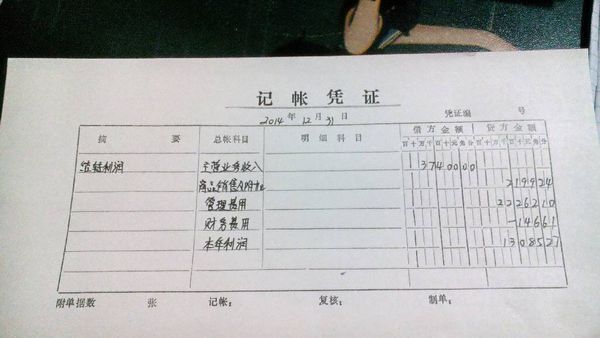 记帐凭证
2014年12月31日 凭证编 号
摘要 总帐科目 明细科目 借方金额 贷方金额
百十万千百十元角分 百十万千百十元角分
结转利润 主营业务收入 3740000
商品销售及附加 219924
管理费用 2226210
财务费用 -14661
本年利润 1308527
附单据数 张 记帐： 复核： 制单：